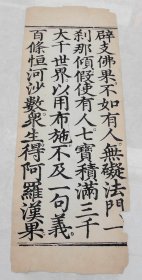 辟支佛果不如有人無礙法門一
刹那傾假使有人七寶積滿三千
大千世界以用布施不及一句義
百條恒河沙數衆生得阿羅漢果